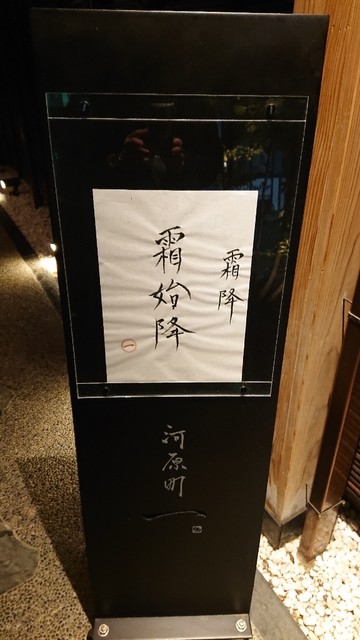 霜降
霜始降
一
河原町
一